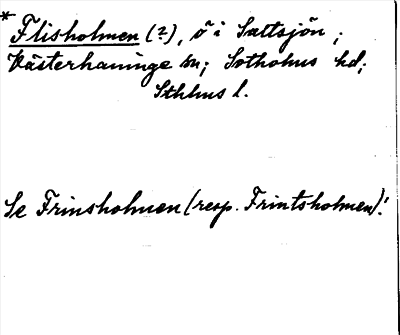 * Flisholmen (?), ö i Saltsjön;
Västerhaninge sn; Sotholms hd;
Sthlms l.
Se Frinsholmen (resp. Frintsholmen)!